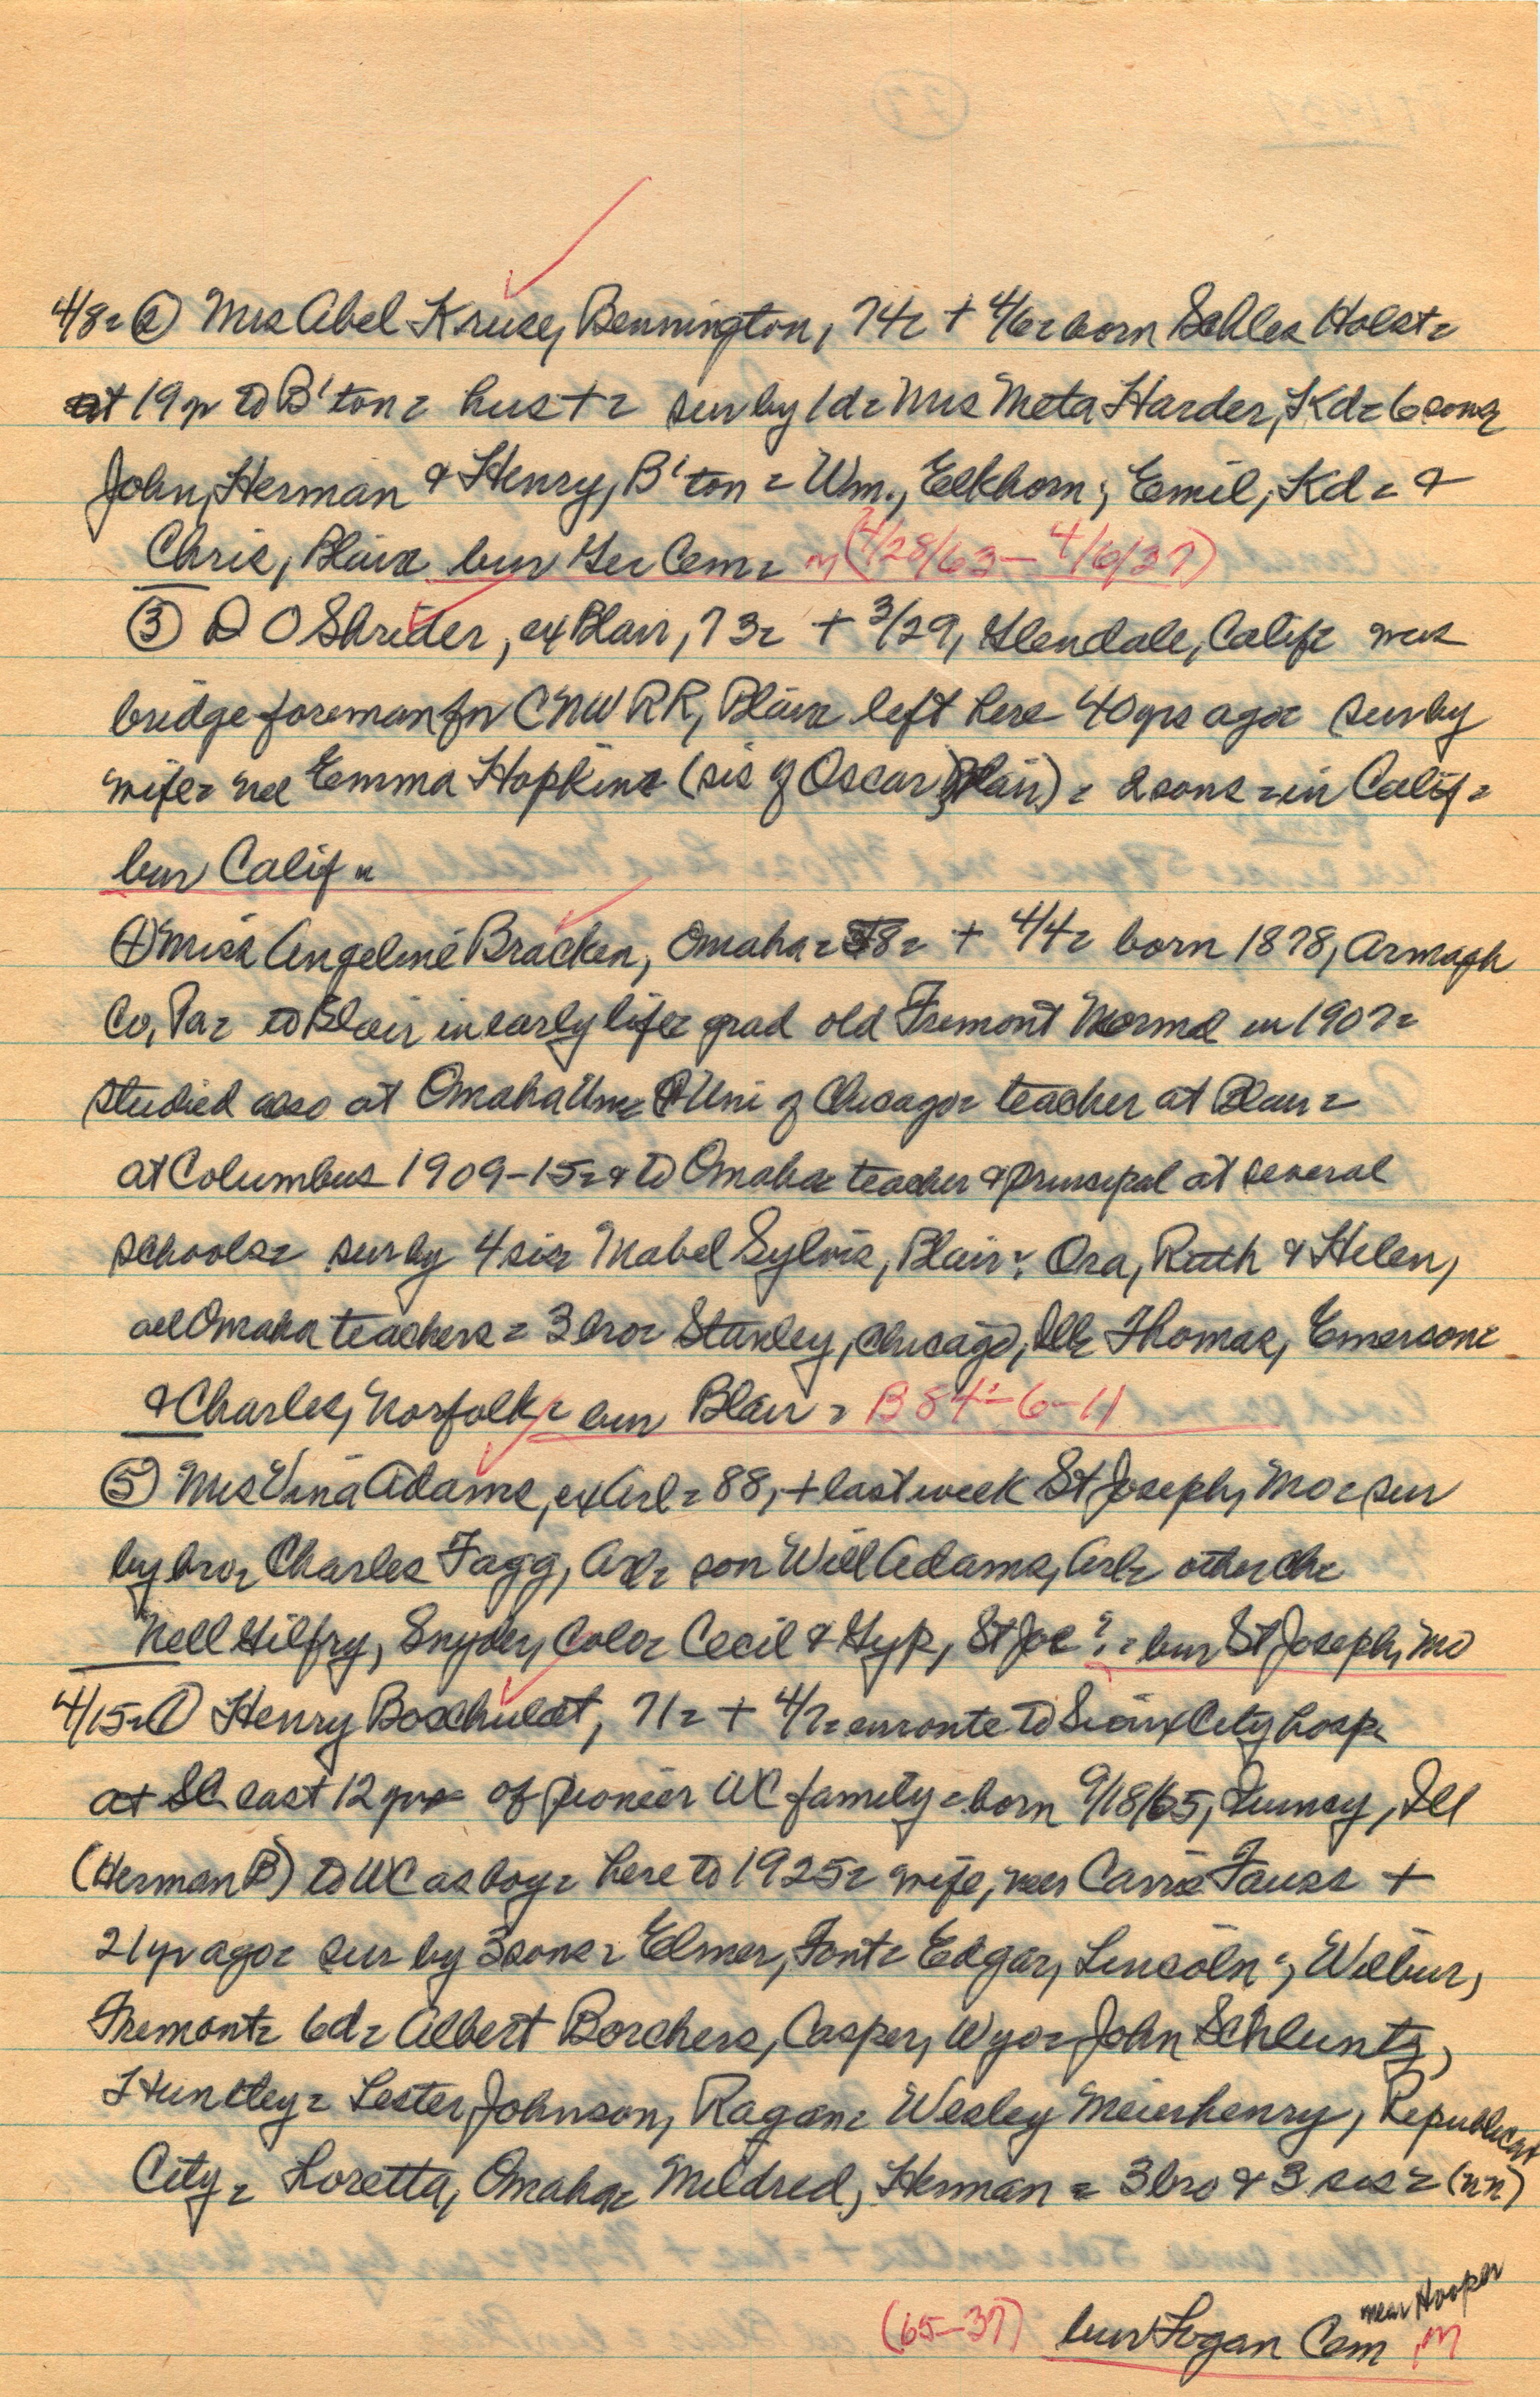 4/8= ② Mrs Abel Kruse, Bennington, 74= + 4/6= born Schles Holst=
at 19 yr to B'ton= hus += sur by 1d= Mrs Meta Harder, Kd= 6 sons=
John, Herman & Henry, B'ton = Wm., Elkhorn; Emil, Kd = &
Chris, Blair= bur Ger Cem= M (4/28/63 - 4/6/37)
③ D O Shrider, ex Blair, 73= + 3/29, Glendale, Calif= was
bridge foreman for CNW RR, Blair= left here 40 yrs ago= sur by
wife= nee Emma Hopkins (sis of Oscar, Blair) = 2 sons = in Calif =
bur Calif =
④ Miss Angeline Bracken, Omaha= 58= + 4/4= born 1878, Armagh
Co, Pa= to Blair in early life= grad old Fremont Normal in 1907=
studied also at Omaha Uni= & Uni of Chicago= teacher at Blair =
at Columbus 1909-15= & to Omaha= teacher & principal at several
schools= sur by 4 sis= Mabel Sylvis, Blair; Ora, Ruth & Helen,
all Omaha teachers = 3 bro= Stanley, Chicago, Ill= Thomas, Emerson=
& Charles, Norfolk= bur Blair = B 84-6-11
⑤ Mrs Vina Adams, ex Arl= 88, + last week St Joseph, Mo= sur
by bro= Charles Fagg, Arl= son Will Adams, Arl= other ch=
Nell Gilfry, Snyder, Colo= Cecil & Gyp, St Joe?; = bur St Joseph, Mo
4/15= ① Henry Boschuldt, 71= + 4/7= enroute to Sioux City hosp=
at SC last 12 yrs= of pioneer WC family= born 9/18/65, Quincy, Ill
(Herman B) to WC as boy= here to 1925= wife, nee Carrie Fauss +
21 yr ago= sur by 3 sons= Elmer, Font= Edgar, Lincoln; Wilbur,
Fremont= 6d= Albert Borchers, Casper, Wyo= John Schluntz,
Huntley= Lester Johnson, Ragan= Wesley Meierhenry, Republican
City= Loretta, Omaha= Mildred, Herman = 3 bro & 3 sis = (nn)
near Hooper
(65-37) bur Logan Cem M